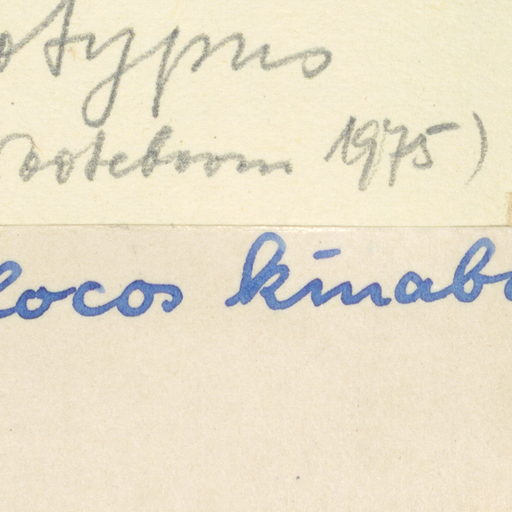 otypus
Nooteboom 1975)
locos kinaba